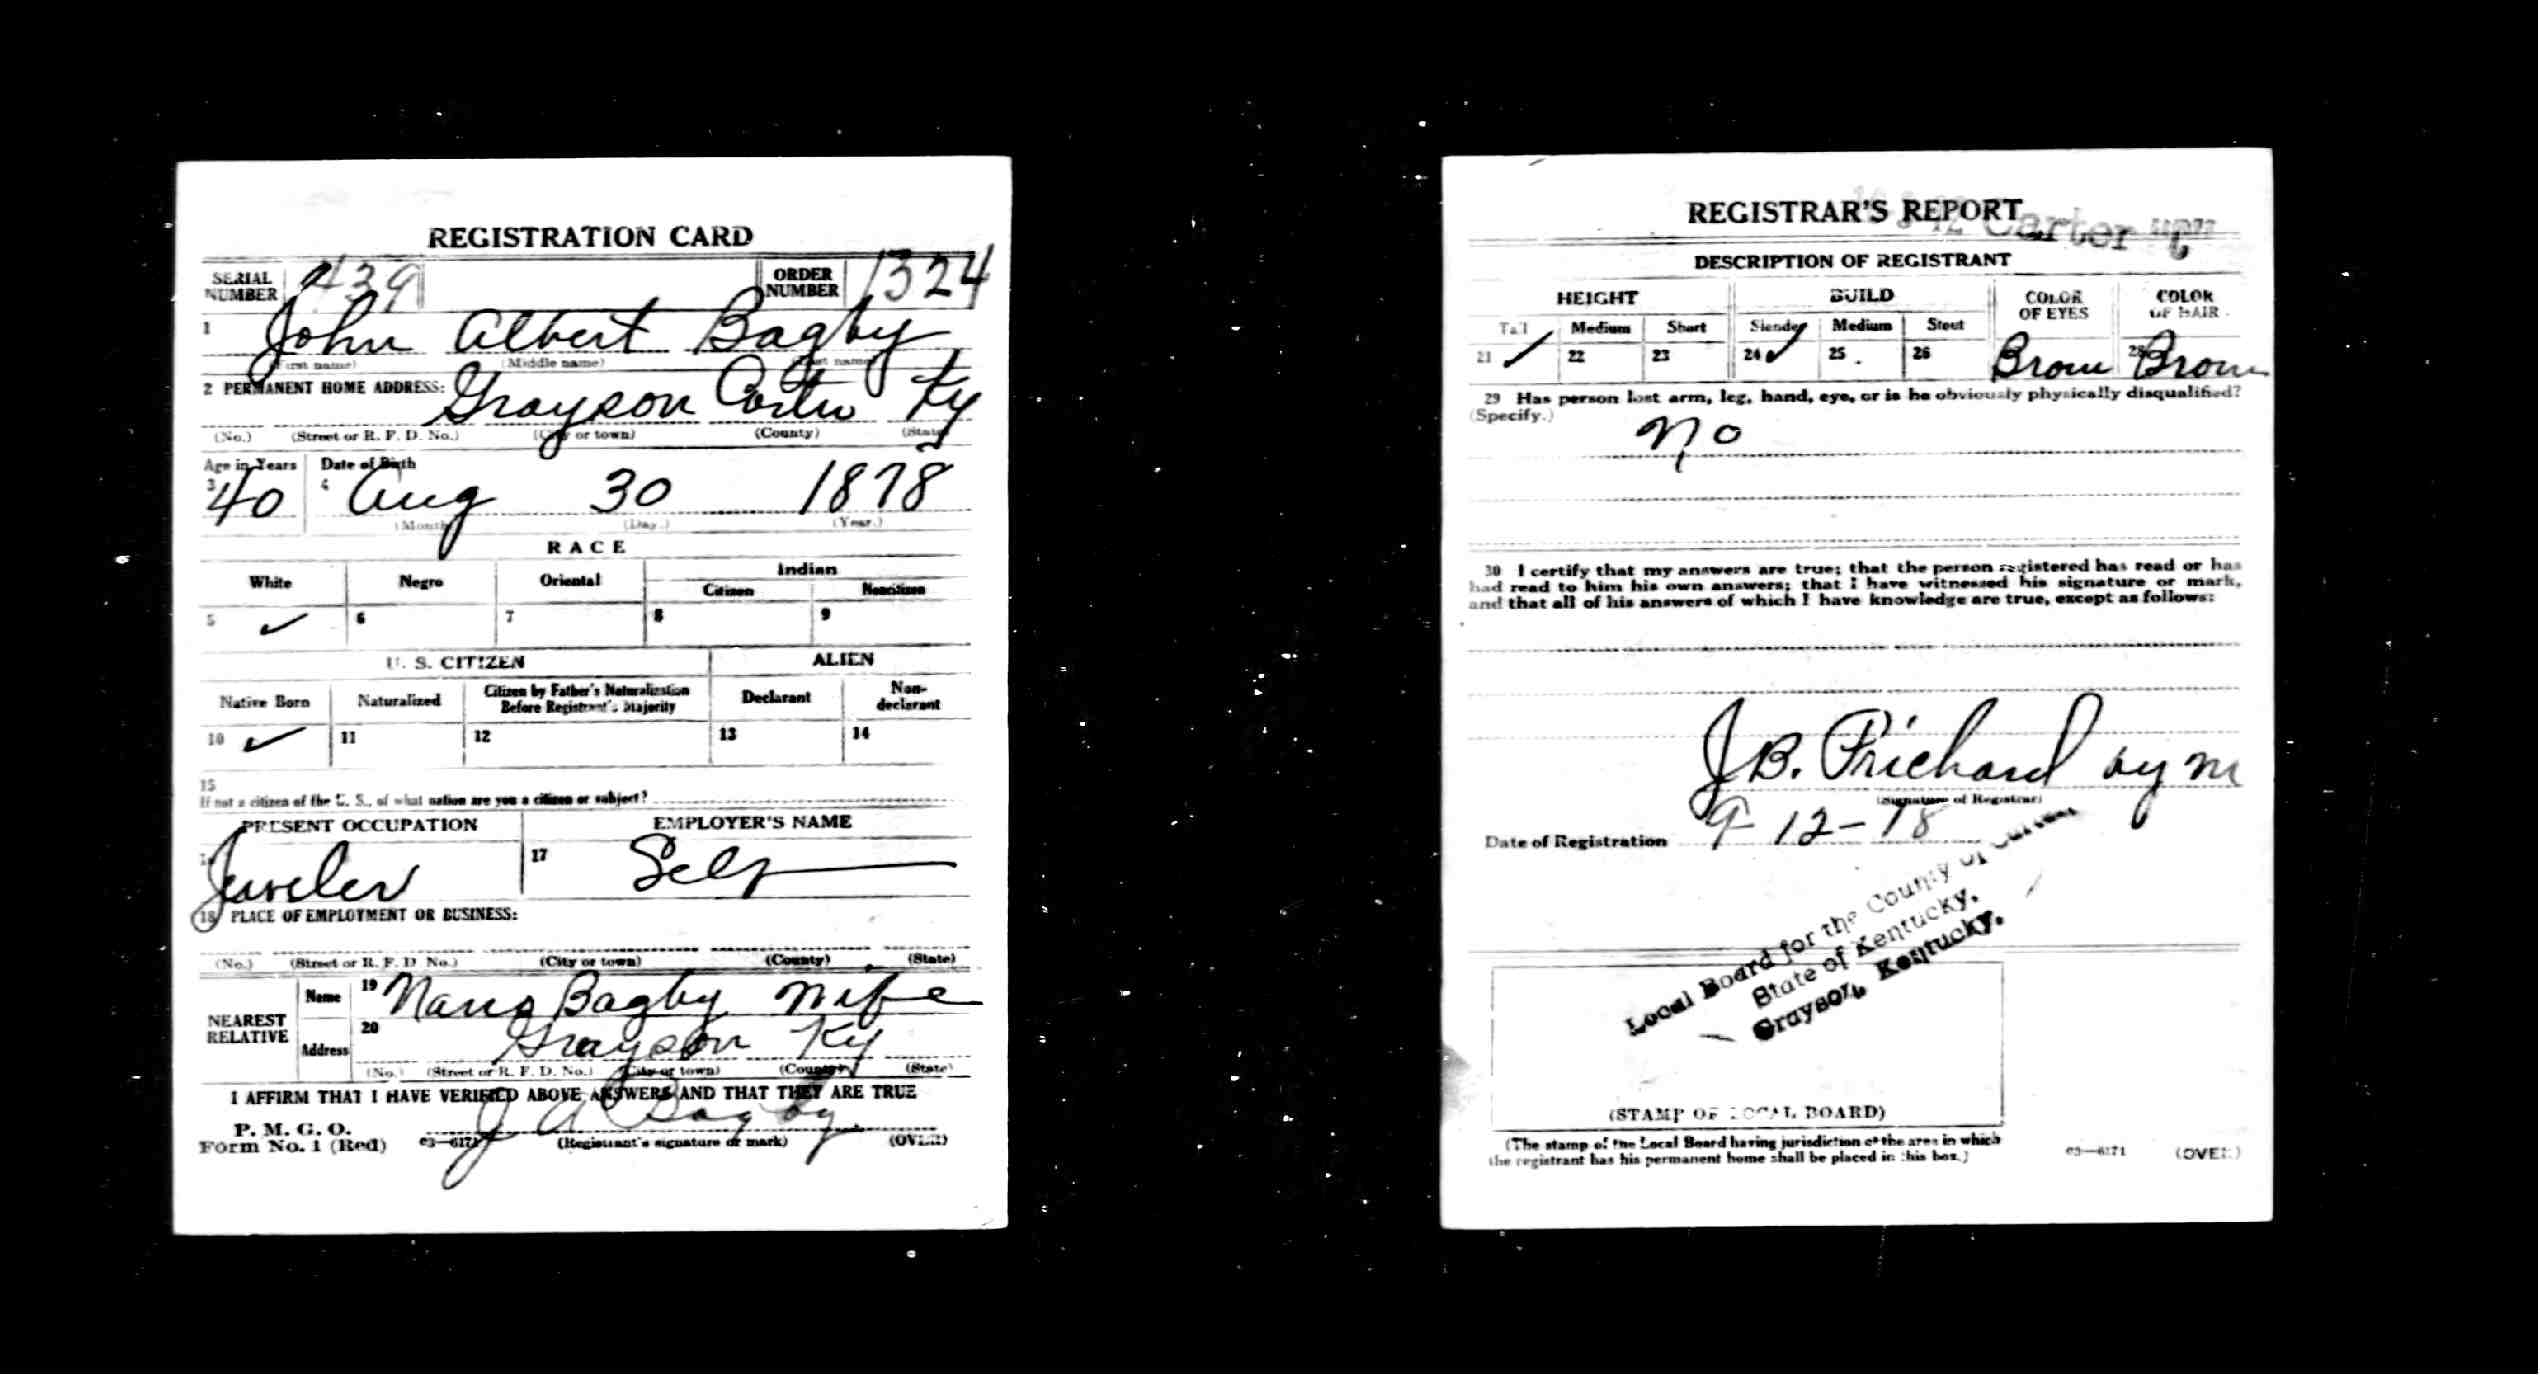 REGISTRATION CARD
SERIAL NUMBER 439 ORDER NUMBER 1324
1 John Albert Bagby
(First name) (Middle name) (Last name)
2 PERMANENT HOME ADDRESS: Grayson Carter Ky
(No.) (Street or R. F. D. No.) (City or town) (County) (State)
Age in Years Date of Birth
3 40 4 Aug 30 1878
(Month) (Day.) (Year.)
RACE
White Negro Oriental Indian
Citizen Noncitizen
5 ✓ 6 7 8 9
U. S. CITIZEN ALIEN
Native Born Naturalized Citizen by Father's Naturalization Before Registrant's Majority Declarant Non-declarant
10 ✓ 11 12 13 14
15
If not a citizen of the U. S., of what nation are you a citizen or subject?
PRESENT OCCUPATION EMPLOYER'S NAME
Jeweler 17 Self
18 PLACE OF EMPLOYMENT OR BUSINESS:
(No.) (Street or R. F. D. No.) (City or town) (County) (State)
NEAREST RELATIVE
Name 19 Bagby Wife
Address 20 Grayson Ky
(No.) (Street or R. F. D. No.) (City or town) (County) (State)
I AFFIRM THAT I HAVE VERIFIED ABOVE ANSWERS AND THAT THEY ARE TRUE
P. M. G. O.
Form No. 1 (Red) 03—6171 J A Bagby (Registrant's signature or mark) (OVER)
REGISTRAR'S REPORT
Carter
DESCRIPTION OF REGISTRANT
HEIGHT BUILD COLOR OF EYES COLOR OF HAIR
Tall Medium Short Slender Medium Stout
21 ✓ 22 23 24 ✓ 25 26 Brown 28 Brown
29 Has person lost arm, leg, hand, eye, or is he obviously physically disqualified?
(Specify.)
No
30 I certify that my answers are true; that the person registered has read or has
had read to him his own answers; that I have witnessed his signature or mark,
and that all of his answers of which I have knowledge are true, except as follows:
J.B. Prichard by m
(Signature of Registrar)
Date of Registration 9-12-18
Local Board for the County of Carter,
State of Kentucky,
Grayson, Kentucky.
(STAMP OF LOCAL BOARD)
(The stamp of the Local Board having jurisdiction of the area in which
the registrant has his permanent home shall be placed in this box.)
03—6171 (OVER)